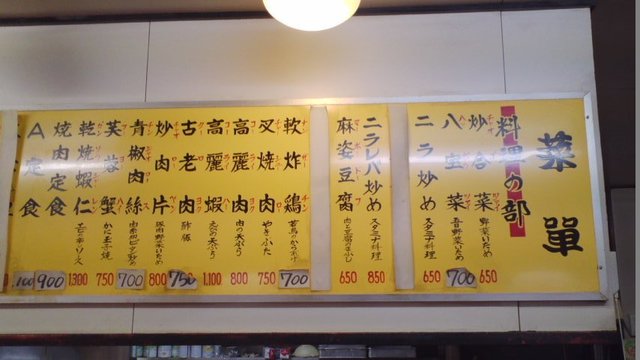 菜單
料理の部
炒合菜 野菜いため 650
八宝菜 五目野菜いため 700
ニラ炒め スタミナ料理 650
ニラレバ炒め スタミナ料理 850
麻婆豆腐 肉と豆腐のとうふ 650
軟炸鶏 若鳥のからあげ 700
叉焼肉 やきぶた 750
高麗肉 肉の天ぷら 800
高麗蝦 エビの天ぷら 1,100
古老肉 酢豚 750
炒肉片 豚肉野菜いため 800
青椒肉絲 700
芙蓉蟹 かに玉子焼 750
乾焼蝦仁 エビのチリソース 1,300
焼肉定食 900
A定食